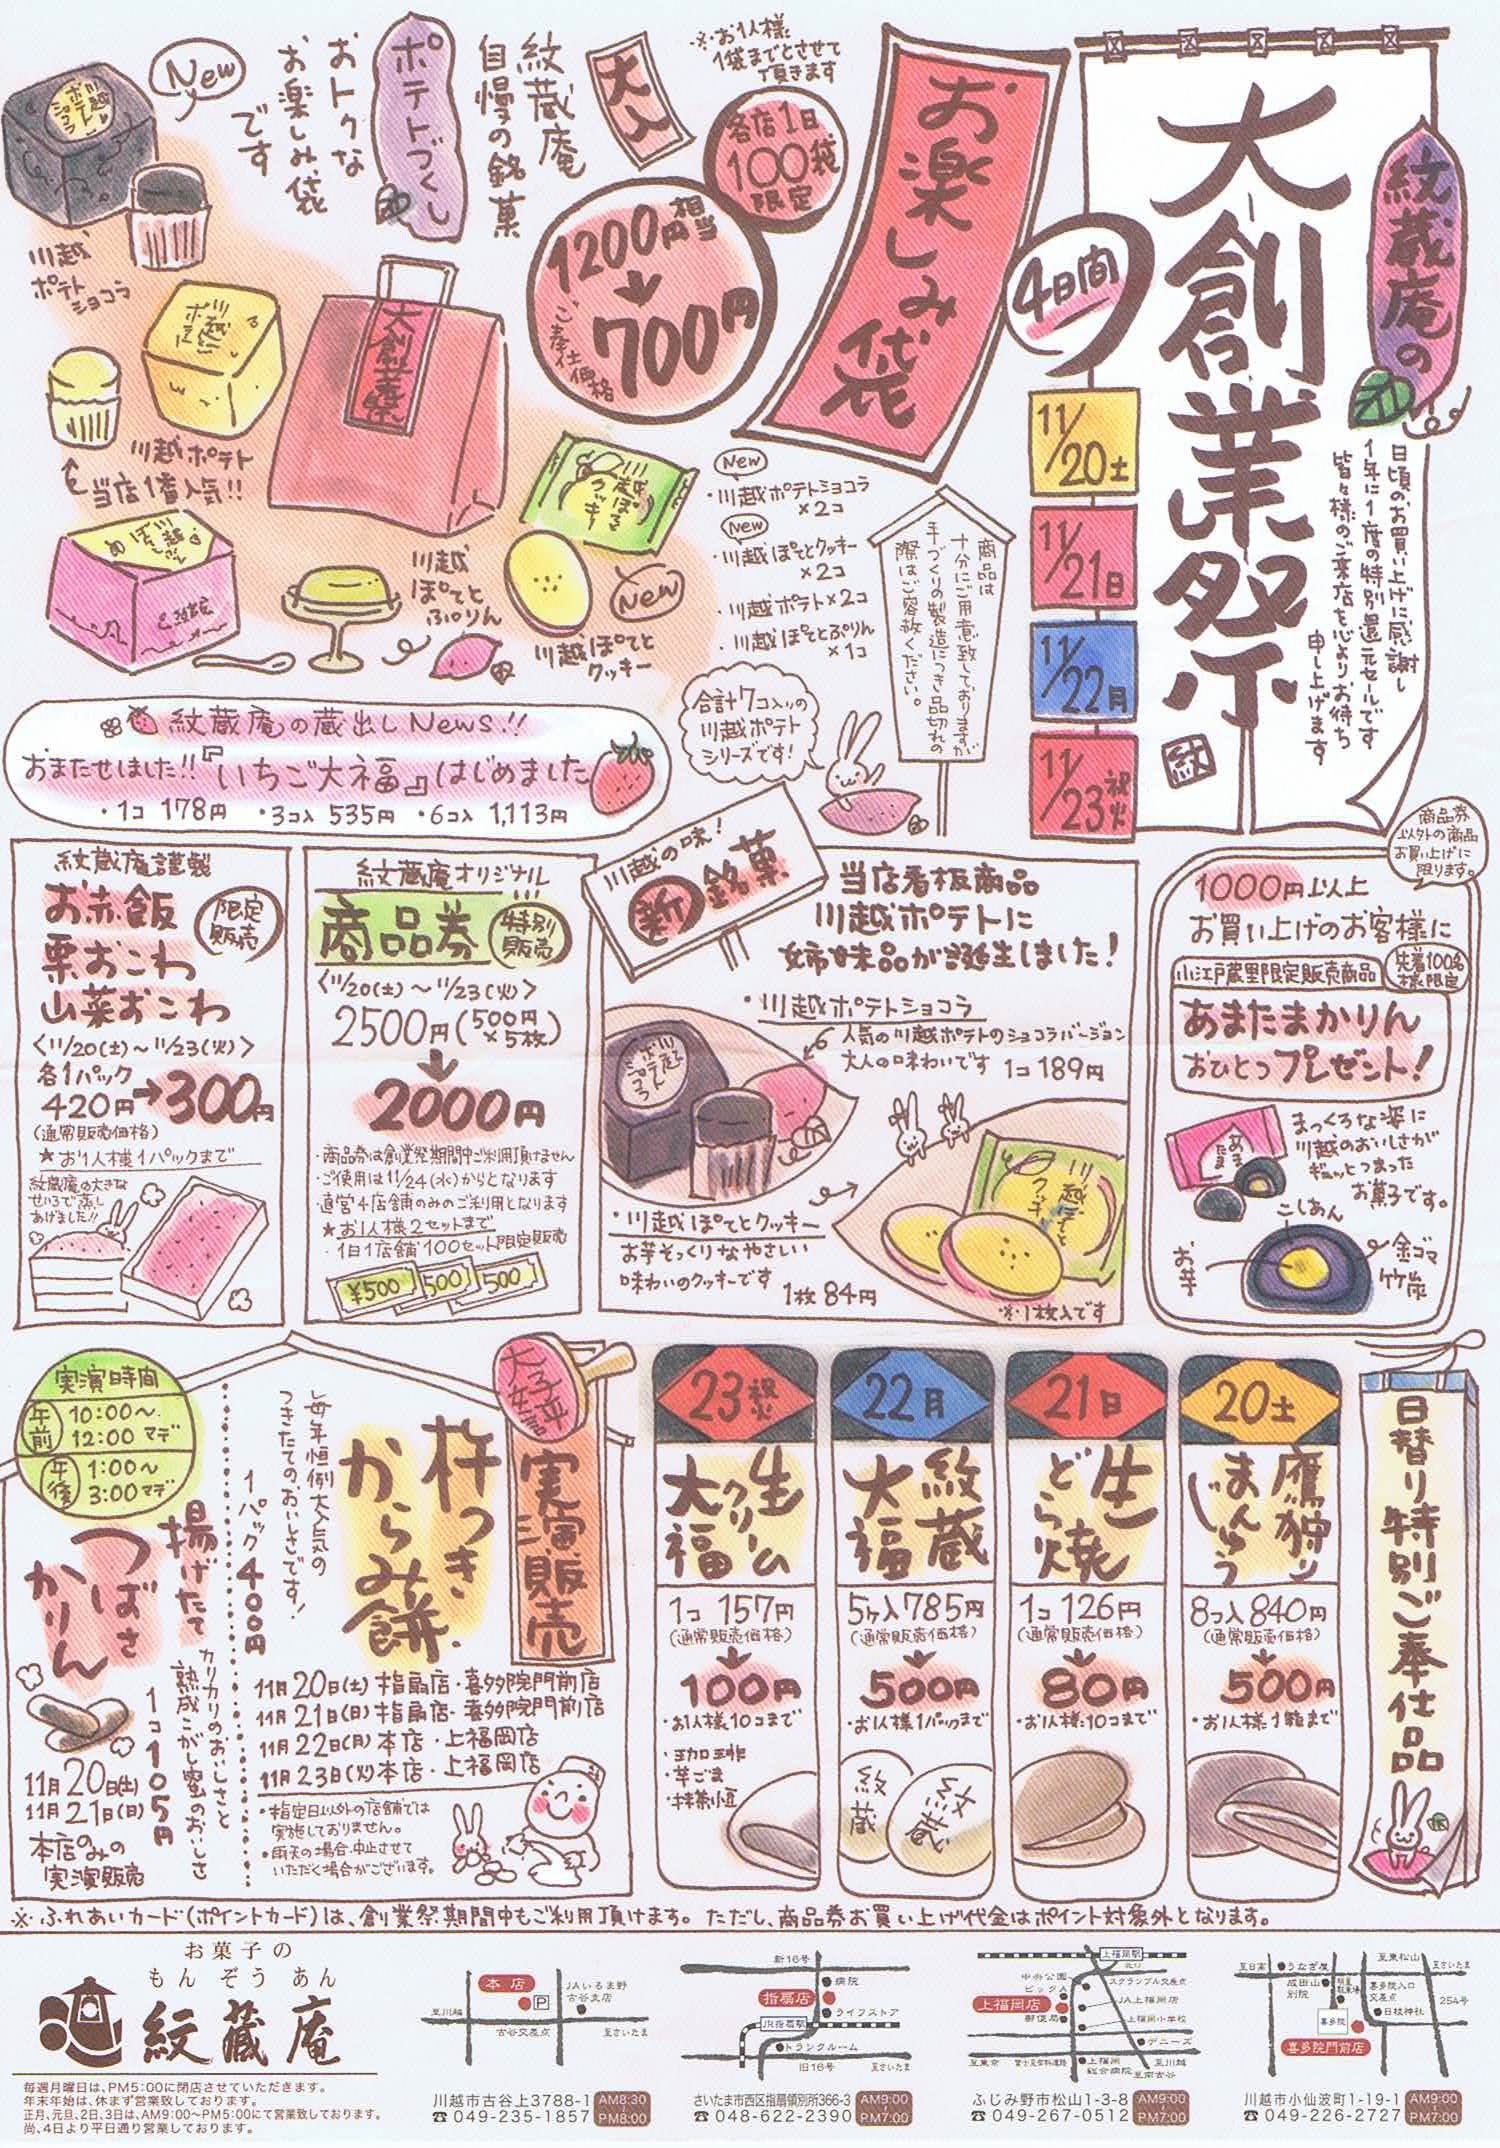 紋蔵庵の
大創業祭
日頃のお買い上げに感謝し
1年に1度の特別還元セールです
皆々様のご来店を心よりお待ち
申し上げます
紋
4日間
11/20土
11/21日
11/22月
11/23祝火
お楽しみ袋
※お1人様
1袋までとさせて
頂きます
各店1日
100袋
限定
1200円相当
700円
ご奉仕価格
大入
紋蔵庵
自慢の銘菓
ポテトづくし
おトクな
お楽しみ袋
です
New
川越
ポテト
ショコラ
川越
ポテト
ショコラ
川越
ポテト
川越ポテト
当店1番人気!!
大創業祭
川越
ぽてと
ぷりん
川越ぽてと
クッキー
New
川越ぽてと
クッキー
New
・川越ポテトショコラ
×2コ
New
・川越ぽてとクッキー
×2コ
・川越ポテト×2コ
・川越ぽてとぷりん
×1コ
合計7コ入りの
川越ポテト
シリーズです!
商品は
十分にご用意致しておりますが
手づくりの製造につき品切れの
際はご容赦ください。
紋蔵庵の蔵出しNews!!
おまたせしました!!『いちご大福』はじめました
・1コ 178円 ・3コ入 535円 ・6コ入 1,113円
紋蔵庵謹製
お赤飯
栗おこわ
山菜おこわ
限定
販売
<11/20(土)~11/23(火)>
各1パック
420円→300円
(通常販売価格)
★お1人様1パックまで
紋蔵庵の大きな
せいろで蒸し
あげました!!
紋蔵庵オリジナル
商品券
特別
販売
<11/20(土)~11/23(火)>
2500円(500円×5枚)
2000円
・商品券は創業祭期間中ご利用頂けません
・ご使用は11/24(水)からとなります
・直営4店舗のみのご利用となります
★お1人様2セットまで
・1日1店舗100セット限定販売
¥500
500
500
川越の味!
新銘菓
当店看板商品
川越ポテトに
姉妹品が誕生しました!
・川越ポテトショコラ
人気の川越ポテトのショコラバージョン
大人の味わいです 1コ189円
川越
ポテト
ショコラ
・川越ぽてとクッキー
お芋そっくりなやさしい
味わいのクッキーです
1枚84円
川越ぽてと
クッキー
※1枚入です
商品券
以外の商品
お買い上げに
限ります。
1000円以上
お買い上げのお客様に
小江戸蔵里限定販売商品
先着100名
様限定
あまたまかりん
おひとつプレゼント!
あまたま
まっくろな姿に
川越のおいしさが
ギュッとつまった
お菓子です。
こしあん
お芋
金ゴマ
竹炭
実演時間
午前
10:00~
12:00マデ
午後
1:00~
3:00マデ
大好評
実演販売
杵つき
からみ餅
毎年恒例大人気の
つきたてのおいしさです!
1パック400円
11月20日(土)指扇店・喜多院門前店
11月21日(日)指扇店・喜多院門前店
11月22日(月)本店・上福岡店
11月23日(火)本店・上福岡店
・指定日以外の店舗では
実施しておりません。
・雨天の場合、中止させて
いただく場合がございます。
揚げたて
つばさ
かりん
カリカリのおいしさと
熟成こがし蜜のおいしさ
1コ105円
11月20日(土)
11月21日(日)
本店のみの
実演販売
日替り特別ご奉仕品
20土
鷹狩り
まんじゅう
8コ入840円
(通常販売価格)
500円
・お1人様1箱まで
21日
生
どら焼
1コ126円
(通常販売価格)
80円
・お1人様10コまで
22月
紋蔵
大福
5ヶ入785円
(通常販売価格)
500円
・お1人様1パックまで
紋蔵
紋蔵
23祝火
生クリーム
大福
1コ157円
(通常販売価格)
100円
・お1人様10コまで
・珈琲
・芋ごま
・抹茶小豆
※ふれあいカード(ポイントカード)は、創業祭期間中もご利用頂けます。ただし、商品券お買い上げ代金はポイント対象外となります。
お菓子の
もんぞうあん
紋蔵庵
毎週月曜日は、PM5:00に閉店させていただきます。
年末年始は、休まず営業致しております。
正月、元旦、2日、3日は、AM9:00~PM5:00にて営業致しております。
尚、4日より平日通り営業しております。
本店
P
JAいるま野
古谷支店
至川越
古谷交差点
至さいたま
川越市古谷上3788-1
☎049-235-1857
AM8:30
PM8:00
新16号
病院
指扇店
ライフストア
JR指扇駅
トランクルーム
旧16号
至さいたま
さいたま市西区指扇領別所366-3
☎048-622-2390
AM9:00
PM7:00
上福岡駅
北口
中央公園
スクランブル交差点
ビッグA
上福岡店
JA上福岡店
郵便局
上福岡小学校
デニーズ
至東京
富士見有料道路
上福岡
総合病院
至川越
至南古谷
ふじみ野市松山1-3-8
☎049-267-0512
AM9:00
PM7:00
至東松山
至日高
うなぎ屋
至さいたま
成田山
別院
喜多院入口
交差点
254号
日枝神社
喜多院
喜多院門前店
川越市小仙波町1-19-1
☎049-226-2727
AM9:00
PM7:00